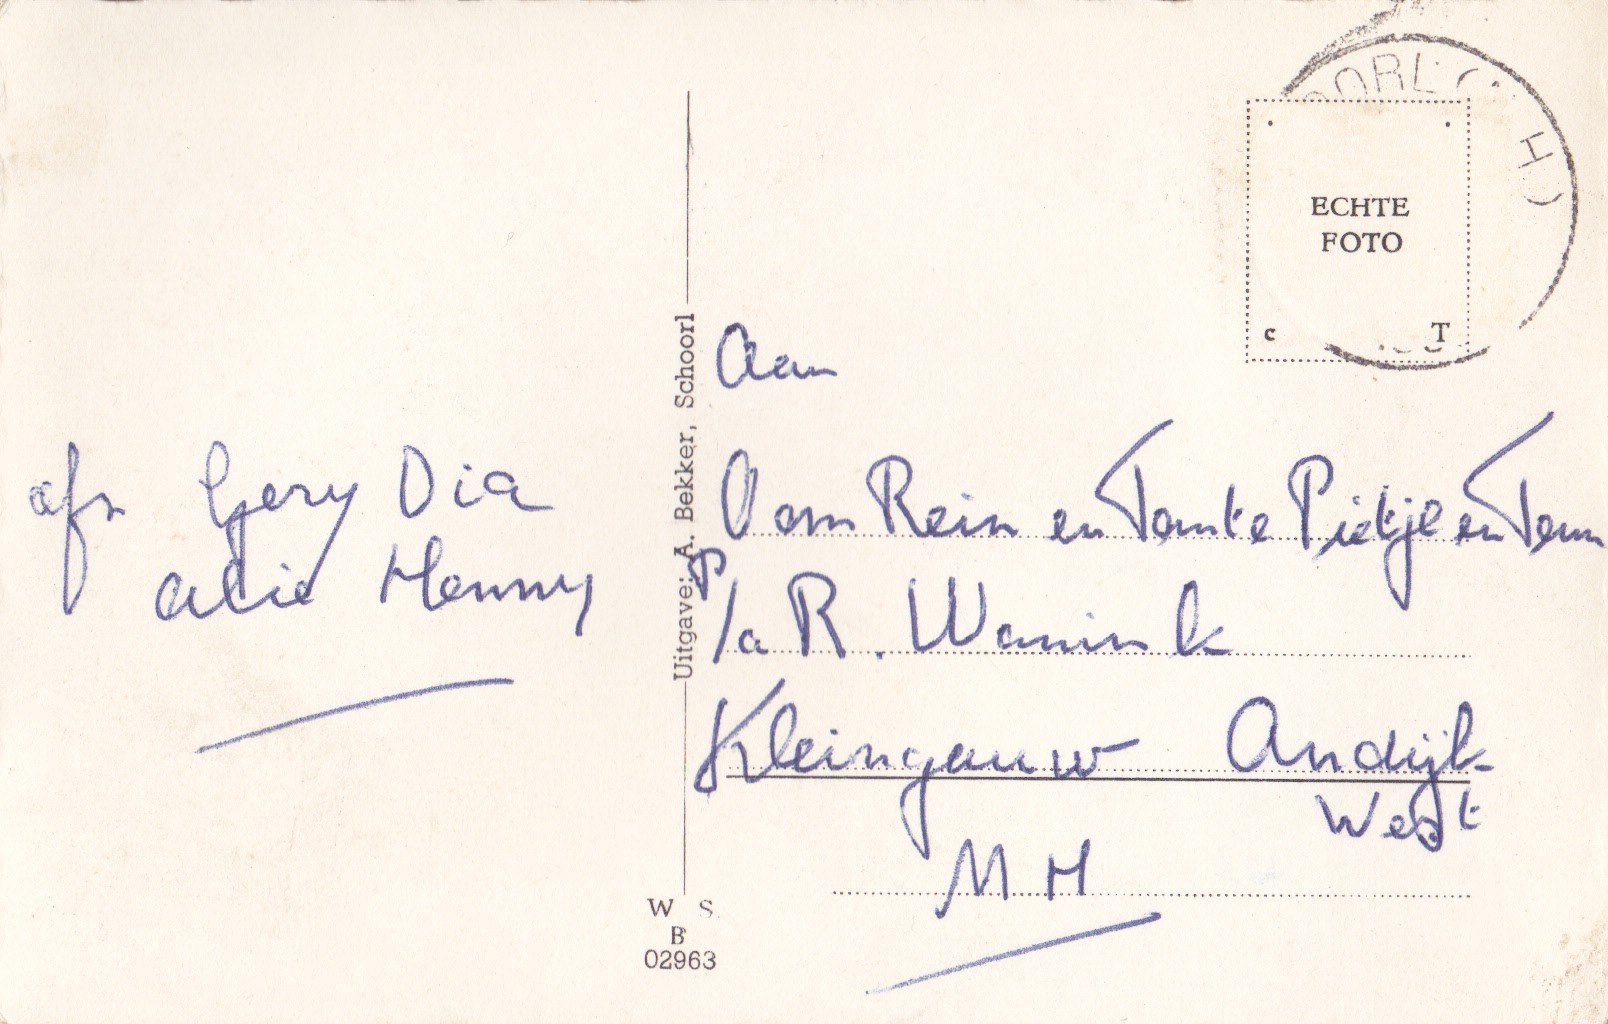 OORL (N H)
ECHTE
FOTO
c T
Uitgave: A. Bekker, Schoorl
afs Gery Dia
Alie Henny
Aan
Oom Rein en Tante Pietje en Teun
P/a R. Wannink
Kleingouw Andijk
West
N H
W S
B
02963